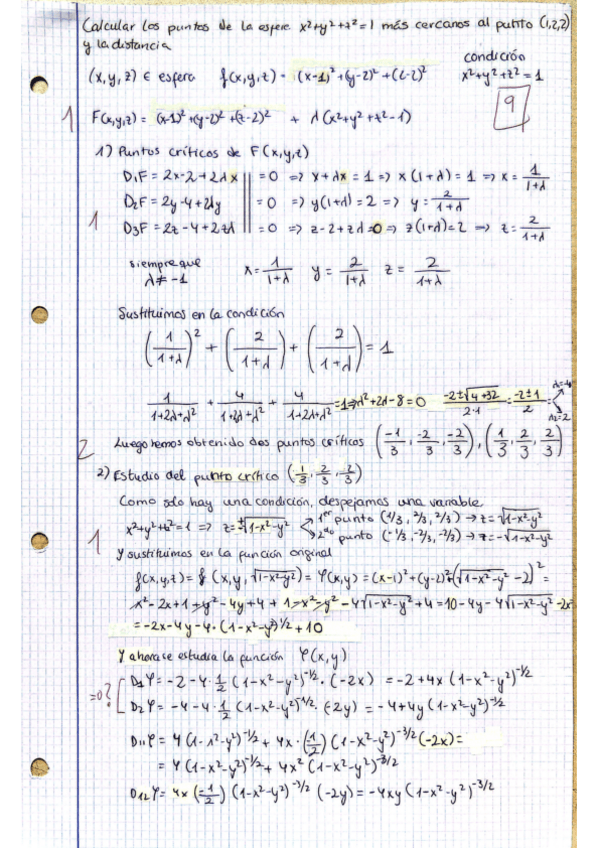 Calcular los puntos de la esfera x²+y²+z²=1 más cercanos al punto (1,2,2)
y la distancia
condición
(x,y,z) ∈ esfera f(x,y,z) = (x-1)²+(y-2)²+(z-2)² x²+y²+z²=1
9
1 F(x,y,z) = (x-1)²+(y-2)²+(z-2)² + λ(x²+y²+z²-1)
1) Puntos críticos de F(x,y,z)
D₁F = 2x-2+2λx =0 => x+λx=1 => x(1+λ)=1 => x=1/(1+λ)
D₂F = 2y-4+2λy =0 => y(1+λ)=2 => y=2/(1+λ)
1 D₃F = 2z-4+2zλ =0 => z-2+zλ=0 => z(1+λ)=2 => z=2/(1+λ)
siempre que
λ≠-1 x=1/(1+λ) y=2/(1+λ) z=2/(1+λ)
Sustituimos en la condición
(1/(1+λ))² + (2/(1+λ)) + (2/(1+λ)) = 1
1/(1+2λ+λ²) + 4/(1+2λ+λ²) + 4/(1+2λ+λ²) =1=> λ²+2λ-8=0 (-2±√(4+32))/(2·1) = (-2±1)/2 λ₂=2
2 Luego hemos obtenido dos puntos críticos (-1/3, -2/3, -2/3), (1/3, 2/3, 2/3)
2) Estudio del punto crítico (1/3, 2/3, 2/3)
Como solo hay una condición, despejamos una variable
x²+y²+z²=1 => z=±√(1-x²-y²) 1er punto (1/3, 2/3, 2/3) → z=√(1-x²-y²)
1 2do punto (-1/3, -2/3, -2/3) → z=-√(1-x²-y²)
Y sustituimos en la función original
f(x,y,z) = f(x,y,√(1-x²-y²)) = φ(x,y) = (x-1)²+(y-2)²+(√(1-x²-y²)-2)² =
x²-2x+1+y²-4y+4+1-x²-y²-4√(1-x²-y²)+4=10-4y-4√(1-x²-y²)-2x
= -2x-4y-4·(1-x²-y²)^1/2+10
Y ahora se estudia la función φ(x,y)
=0? D₁φ = -2-4·1/2(1-x²-y²)^-1/2·(-2x) = -2+4x(1-x²-y²)^-1/2
D₂φ = -4-4·1/2(1-x²-y²)^-1/2·(-2y) = -4+4y(1-x²-y²)^-1/2
D₁₁φ = 4(1-x²-y²)^-1/2+4x·(1/2)(1-x²-y²)^-3/2(-2x)=
= 4(1-x²-y²)^-1/2+4x²(1-x²-y²)^-3/2
D₁₂φ = 4x(-1/2)(1-x²-y²)^-3/2(-2y)=-4xy(1-x²-y²)^-3/2